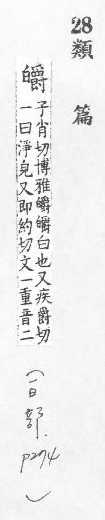 28 類篇
皭 子肖切博雅皭皭白也又疾爵切
一曰淨皃又即約切文一重音二
(白部. p274)